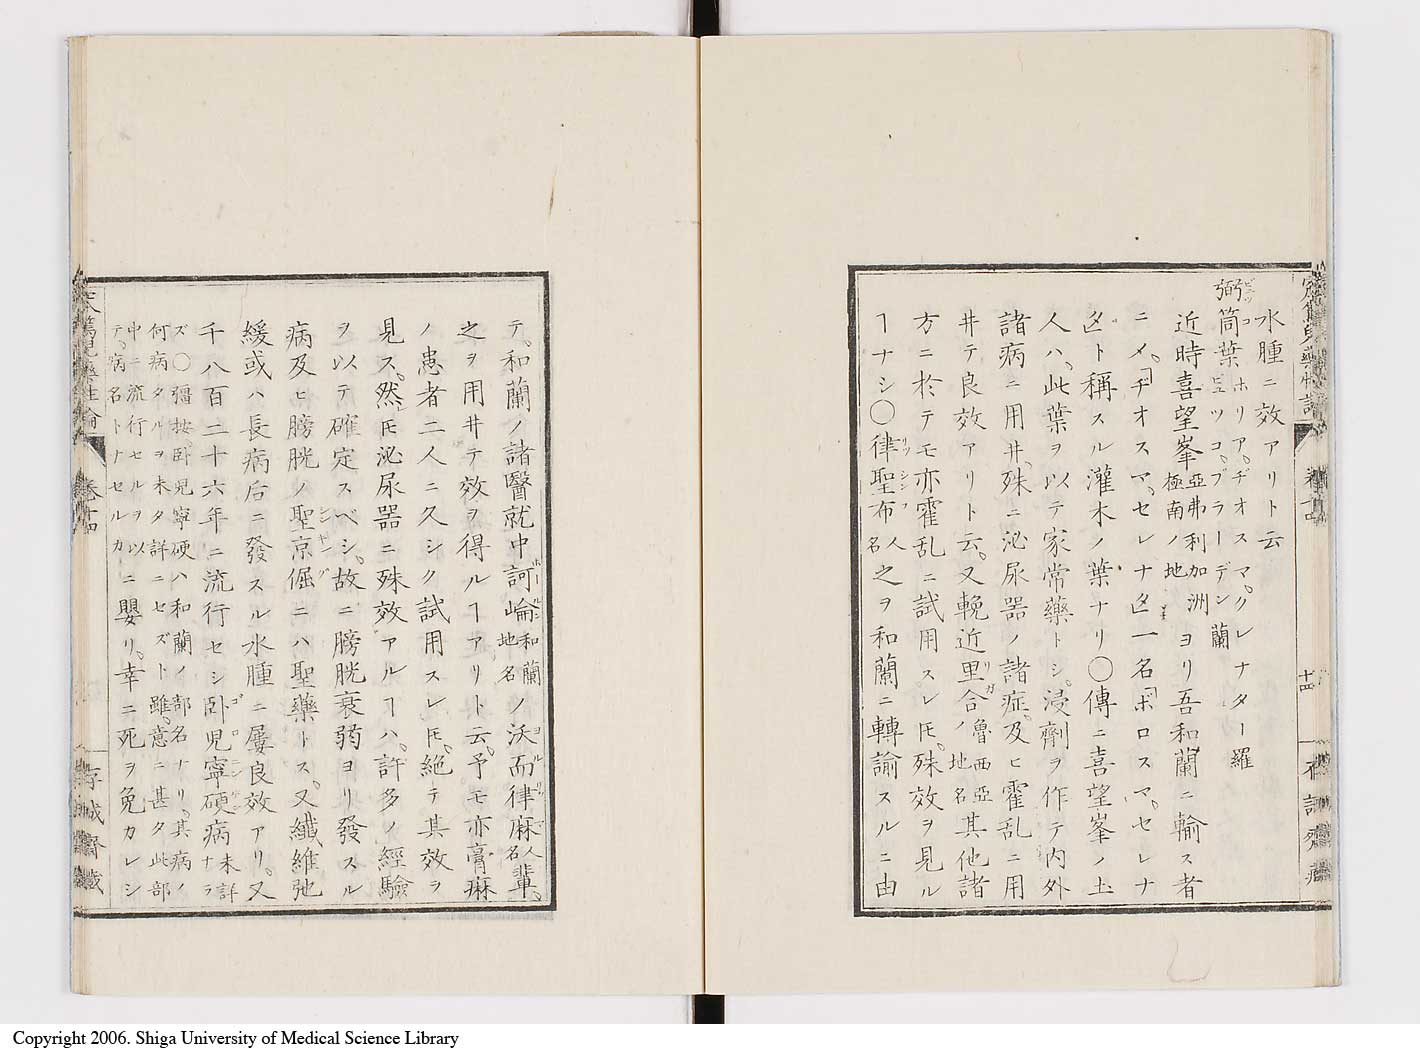 水腫ニ效アリト云
弼箇葉 ホリア、ヂオスマ、クレナター 羅
ビュツコ、ブラーデン 蘭
近時喜望峯 亞弗利加洲極南ノ地 ヨリ吾和蘭ニ輸ス者
ニメ「ヂオスマ、セレナタ」一名「ボロスマ、セレナ
タ」ト稱スル灌木ノ葉ナリ〇傳ニ喜望峯ノ土
人ハ、此葉ヲ以テ家常藥トシ、浸劑ヲ作テ內外
諸病ニ用井、殊ニ泌尿器ノ諸症、及ヒ霍乱ニ用
井テ良效アリト云、又輓近里合 魯西亞ノ地名 其他諸
方ニ於テモ亦霍乱ニ試用スレ𪜈、殊效ヲ見ル
ヿナシ〇律聖布 人名 之ヲ和蘭ニ轉諭スルニ由
十四
テ、和蘭ノ諸醫就中訶崘 和蘭地名 ノ沃而律麻 人名 輩、
之ヲ用井テ效ヲ得ルヿアリト云、予モ亦膏痳
ノ患者二人ニ久シク試用スレ𪜈、絕テ其效ヲ
見ス、然𪜈泌尿器ニ殊效アルヿハ、許多ノ經驗
ヲ以テ確定スベシ、故ニ膀胱衰弱ヨリ發スル
病及ヒ膀胱ノ聖京倔ニハ聖藥トス、又纖維弛
緩或ハ長病后ニ發スル水腫ニ屢良效アリ、又
千八百二十六年ニ流行セシ臥兒寧硬病 未詳ナラ
ズ〇彊按、臥兒寧硬ハ和蘭ノ部名ナリ、其病ノ
何病タルヲ未タ詳ニセズト雖、意ニ甚タ此部
中ニ流行セルヲ以
テ、病名トナセルカ ニ嬰リ、幸ニ死ヲ免カレシ
卷十四
存誠齋藏
Copyright 2006. Shiga University of Medical Science Library